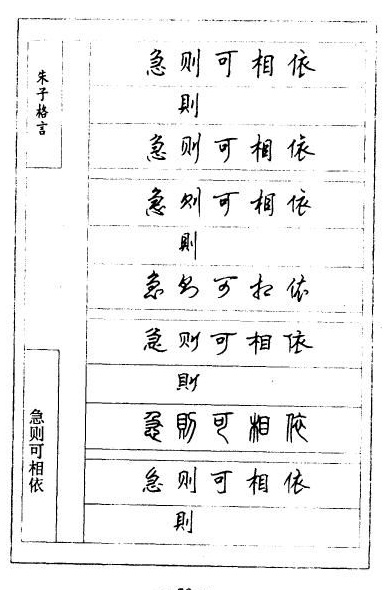 朱子格言
急则可相依
則
急则可相依
急则可相依
則
急则可相依
急则可相依
則
急則可相依
急则可相依
則
急则可相依